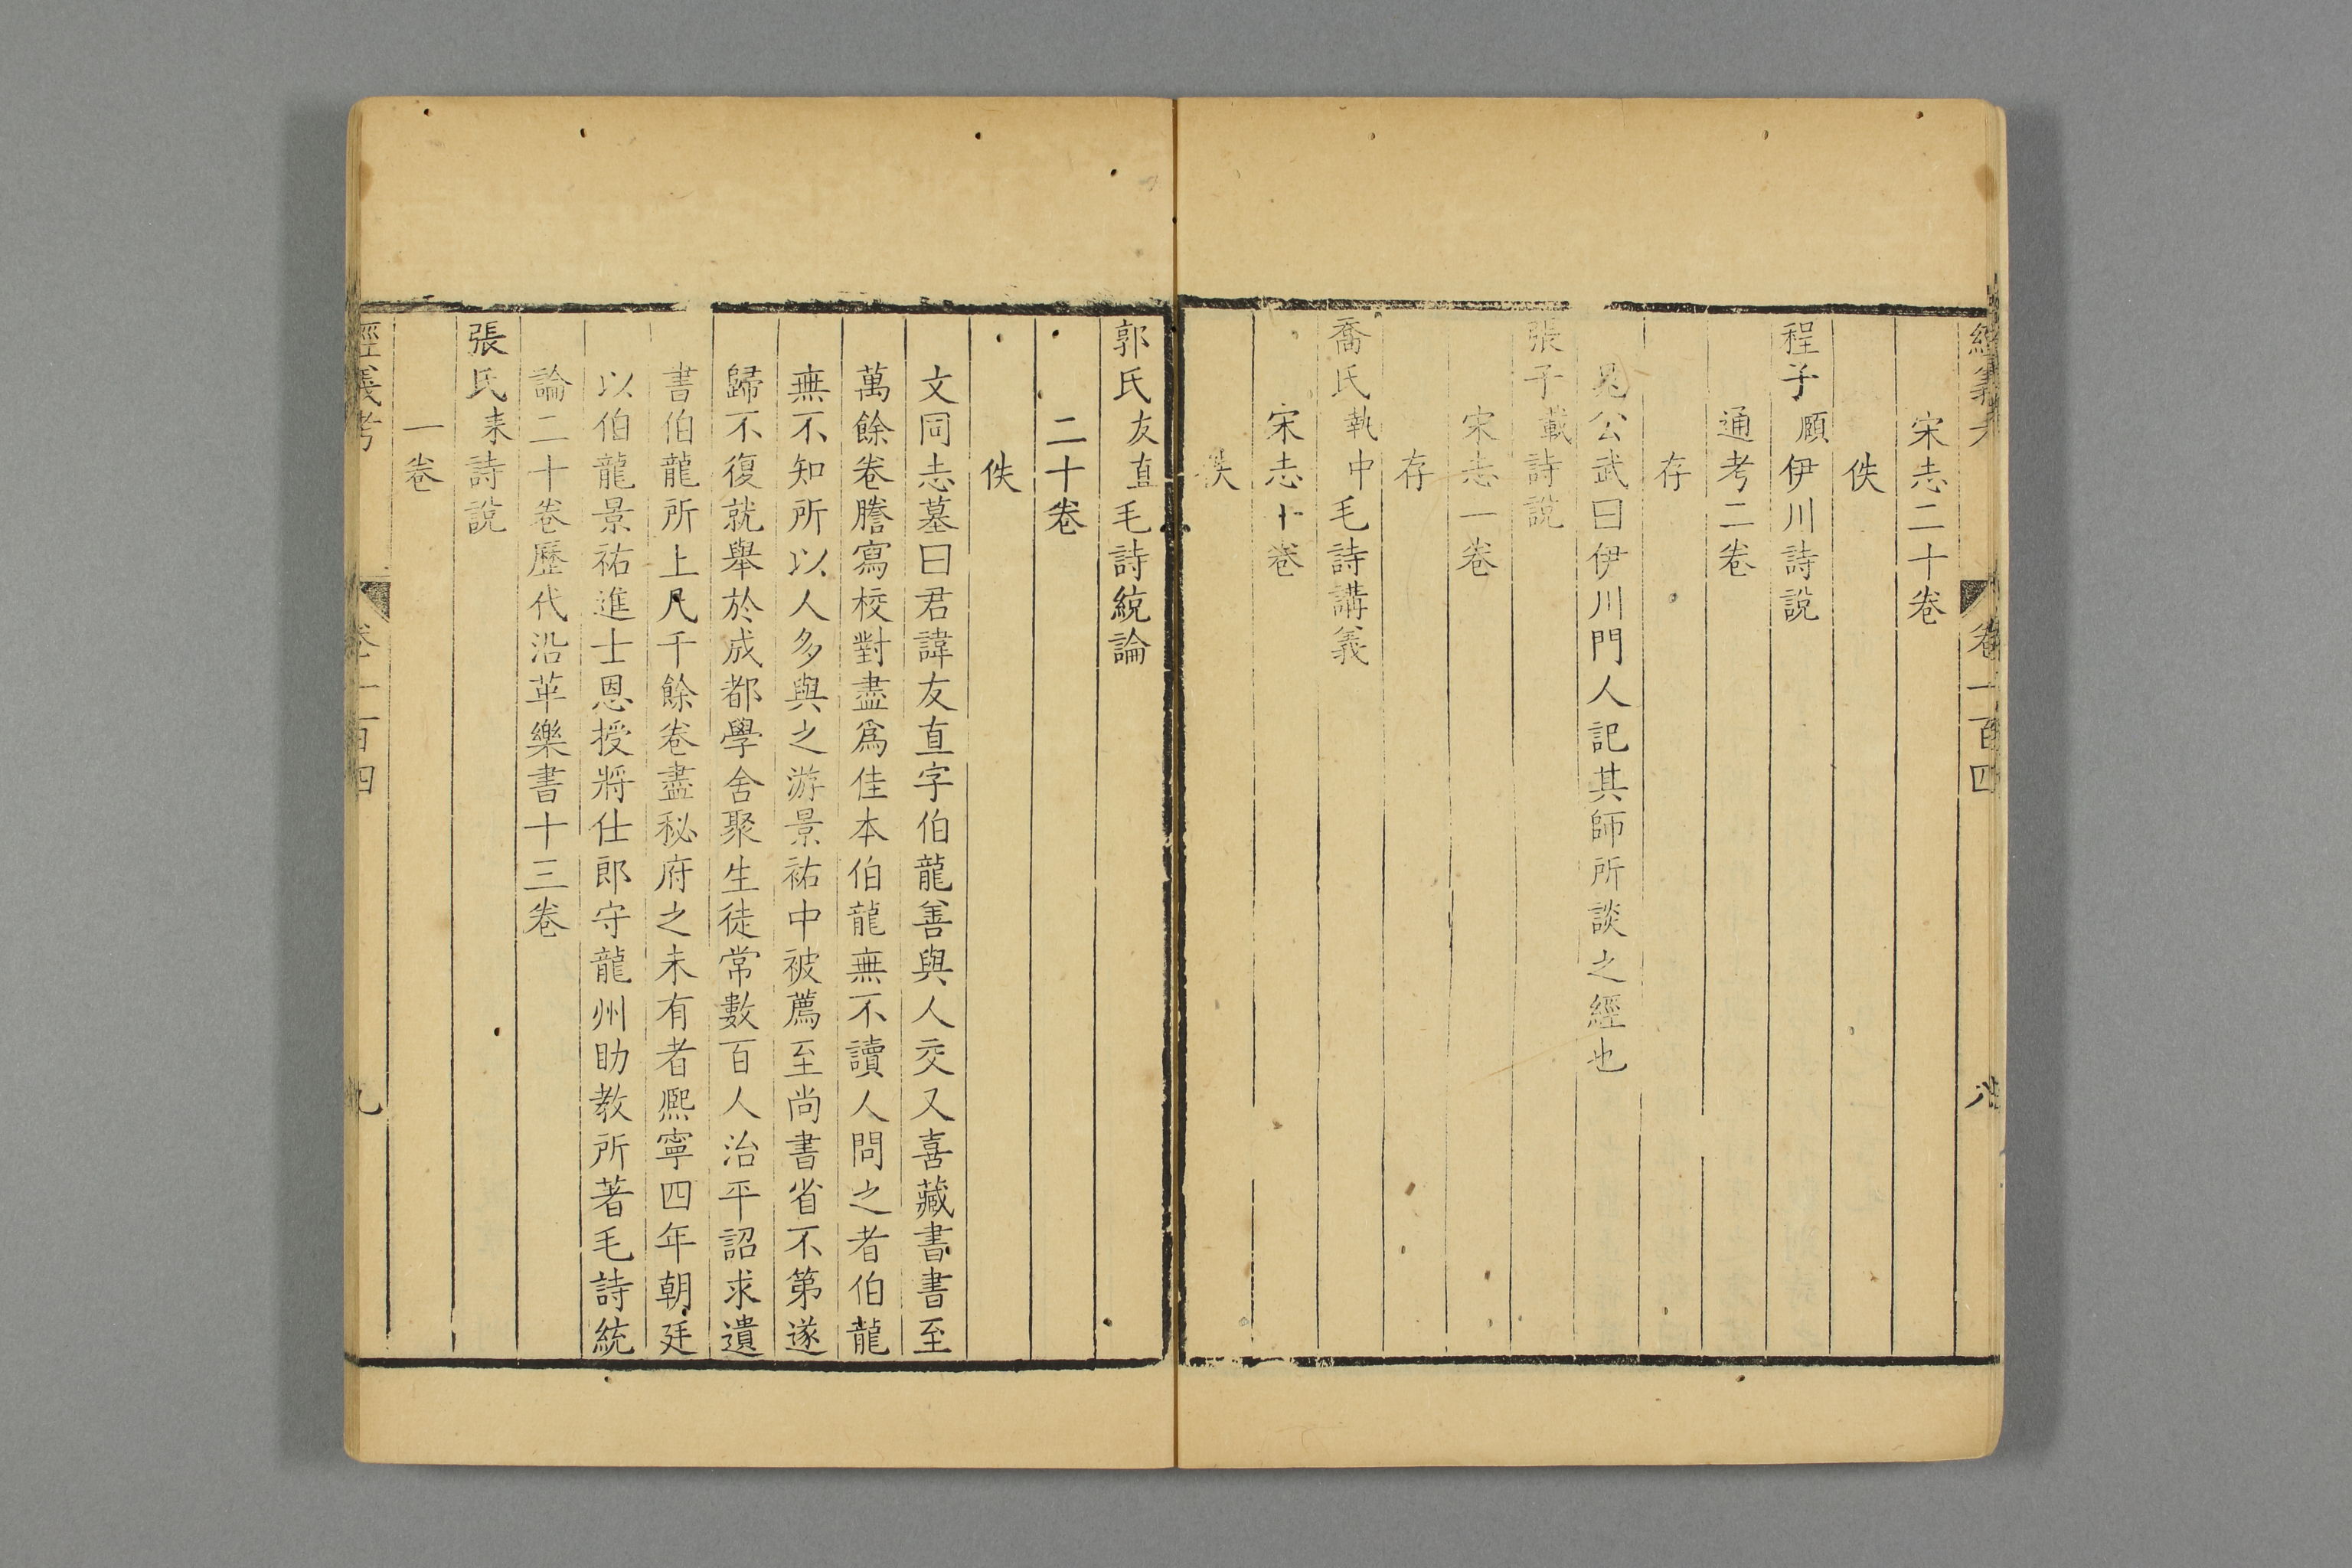 經義考 卷一百四 八
宋志二十卷
佚
程子頤伊川詩說
通考二卷
存
晁公武曰伊川門人記其師所談之經也
張子載詩說
宋志一卷
存
喬氏執中毛詩講義
宋志十卷
佚
郭氏友直毛詩統論
二十卷
佚
文同志墓曰君諱友直字伯龍善與人交又喜藏書書至
萬餘卷謄寫校對盡爲佳本伯龍無不讀人問之者伯龍
無不知所以人多與之游景祐中被薦至尚書省不第遂
歸不復就舉於成都學舍聚生徒常數百人治平詔求遺
書伯龍所上凡千餘卷盡秘府之未有者熈寧四年朝廷
以伯龍景祐進士恩授將仕郎守龍州助教所著毛詩統
論二十卷歷代沿革樂書十三卷
張氏耒詩說
一卷
經義考 卷一百四 九